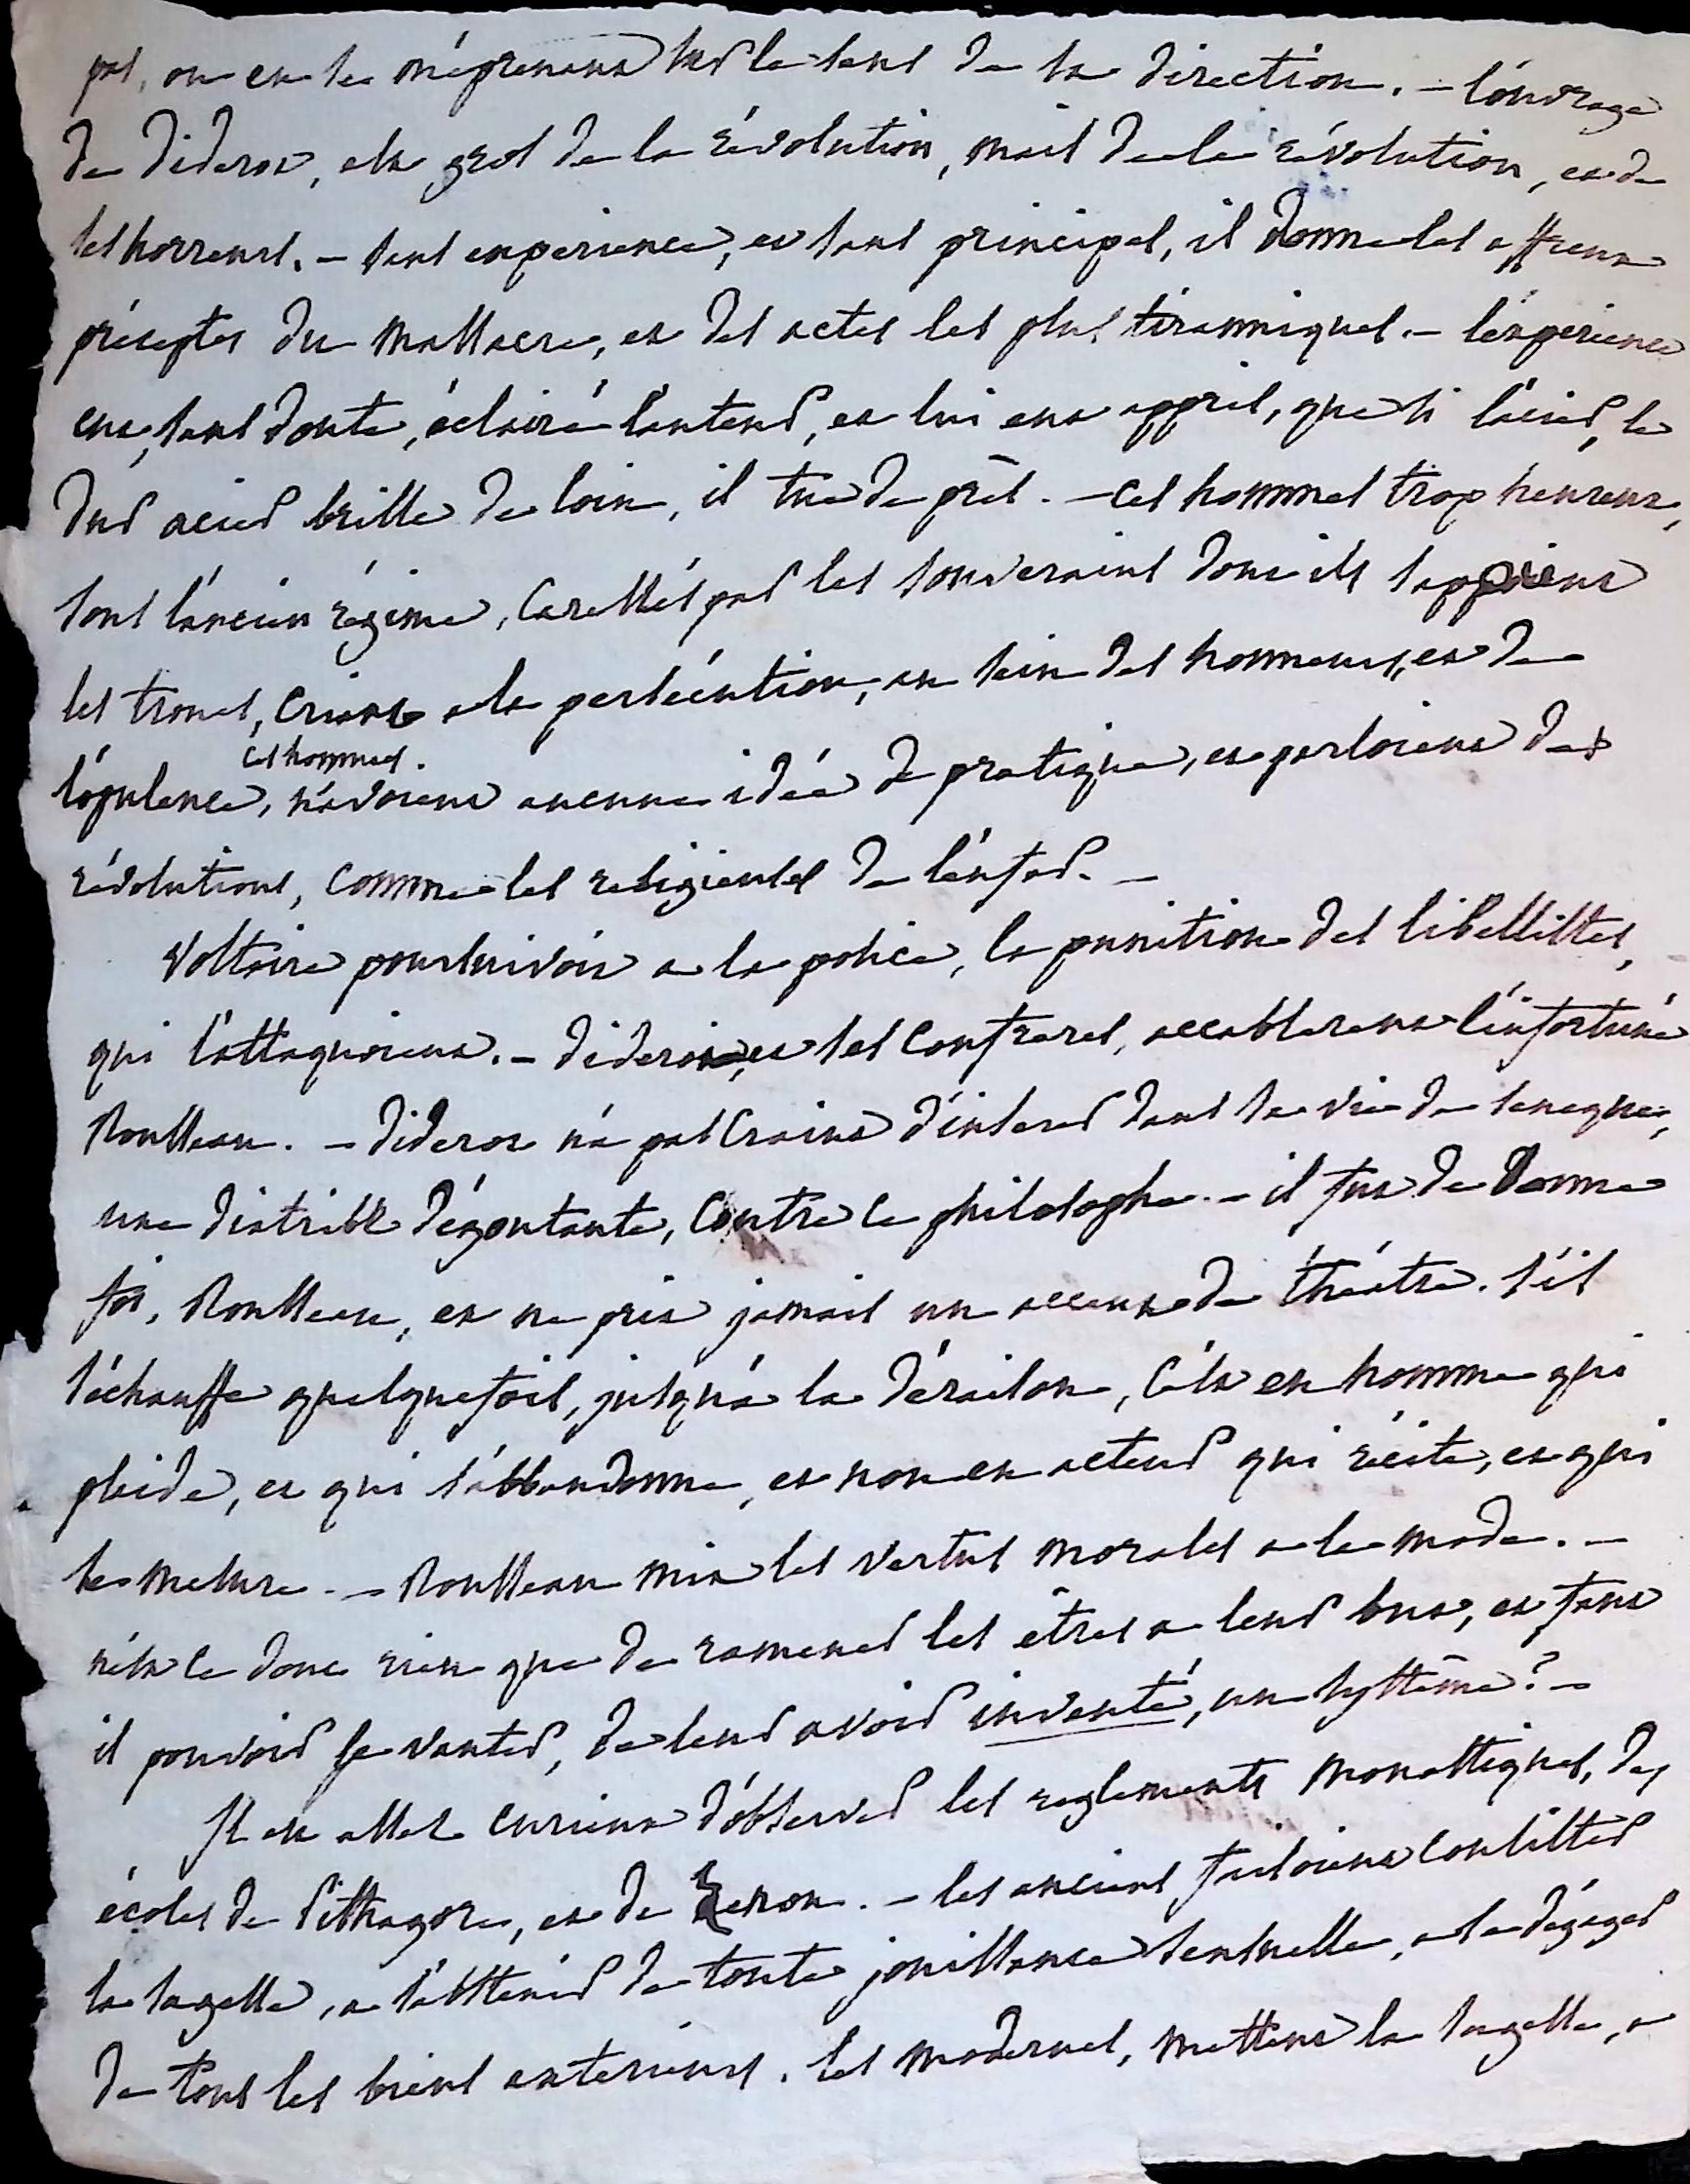 pas, on en se méprenant sur le sens de sa direction. – l'ouvrage
de diderot, est gros de la révolution, mais de la révolution, et de
ses horreurs. – sans experience, et sans principes, il donne les affreux
préceptes du massacre, et des actes les plus tiranniques. – l'experience
eut, sans doute, éclairé l'auteur, et lui eut appris, que si l'acier, le
dur acier brille de loin, il tue de près. – ces hommes trop heureux,
sous l'ancien régime, caressés par les souverains dont ils sappoient
les trones, criant a la persécution, au sein des honneurs, et de
l'opulence, ces hommes. n'avoient aucune idée de pratique, et parloient des
révolutions, comme les religieuses de l'enfer. –
Voltaire poursuivoit a la police, la punition des libellistes,
qui l'attaquoient. – diderot, et ses confreres, accablerent l'infortuné
Rousseau. – diderot n'a pas craint d'inserer dans sa vie de seneque,
une diatribe dégoutante, contre ce philosophe. – il fut de bonne
foi, Rousseau, et ne prit jamais un accent de théatre. s'il
s'échauffe quelquefois, jusqu'a la déraison, c'est en homme qui
plaide, et qui s'abbandonne, et non en acteur qui récite, et qui
se mesure. – Rousseau mit les vertus morales a la mode. –
n'est ce donc rien que de ramener les êtres a leur but, et faut
il pouvoir se vanter, de leur avoir inventé, un systême? –
Il est assez curieux d'observer les reglements monastiques, des
écoles de Pithagore, et de Zenon. – les anciens faisoient consister
la sagesse, a s'abstenir de toute jouissance sensuelle, a se dégager
de tous les biens exterieurs. les modernes, mettent la sagesse, a